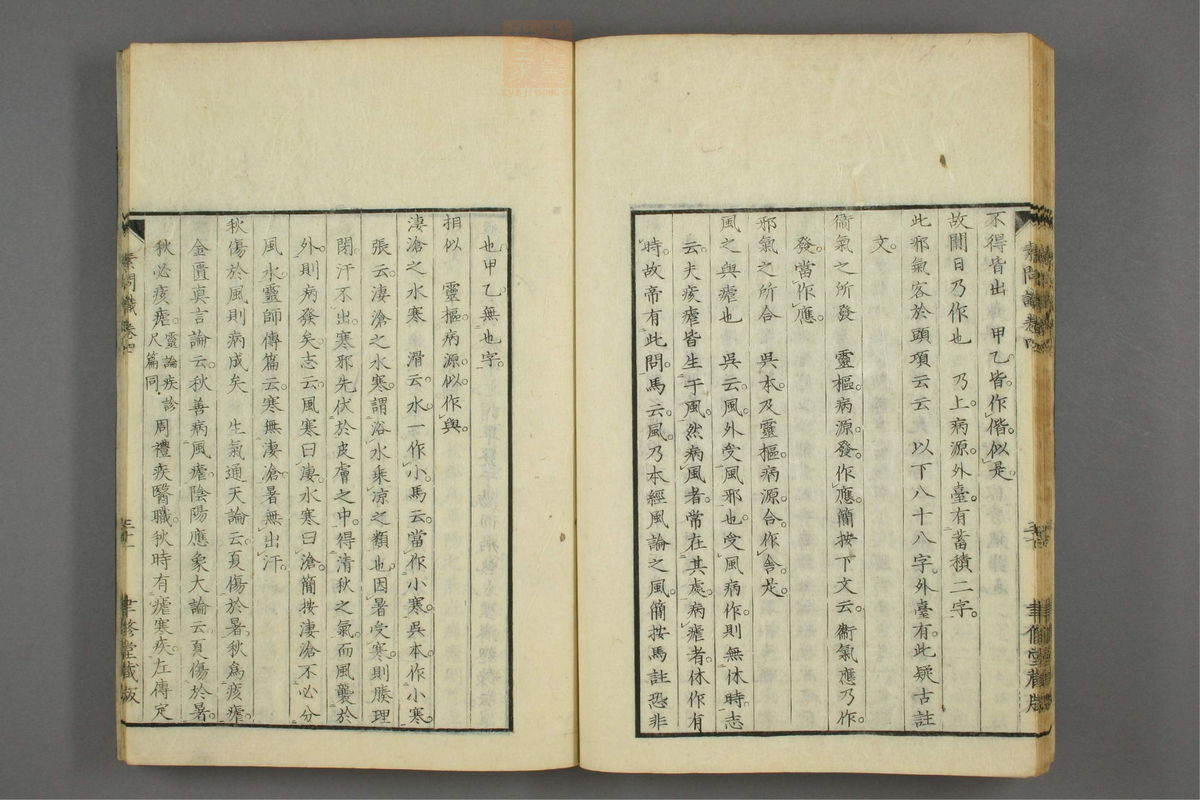 不得皆出 甲乙皆作偕似是
故間日乃作也 乃上病源外臺有蓄積二字
此邪氣客於頭項云云 以下八十八字外臺有此疑古註
文
衞氣之所發 靈樞病源發作應簡按下文云衞氣應乃作
發當作應
邪氣之所合 吳本及靈樞病源合作舍是
風之與瘧也 吳云風外受風邪也受風病作則無休時志
云夫痎瘧皆生于風然病風者常在其處病瘧者休作有
時故帝有此問馬云風乃本經風論之風簡按馬註恐非
也甲乙無也字
相似 靈樞病源似作與
淒滄之水寒 滑云水一作小馬云當作小寒吳本作小寒
張云淒滄之水寒謂浴水乘凉之類也因暑受寒則腠理
閉汗不出寒邪先伏於皮膚之中得清秋之氣而風襲於
外則病發矣志云風寒曰淒水寒曰滄簡按淒滄不必分
風水靈師傳篇云寒無淒滄暑無出汗
秋傷於風則病成矣 生氣通天論云夏傷於暑秋爲痎瘧
金匱眞言論云秋善病風瘧陰陽應象大論云夏傷於暑
秋必痎瘧靈論疾診尺篇同周禮疾醫職秋時有瘧寒疾左傳定
素問識卷四
三十一
聿修堂藏版